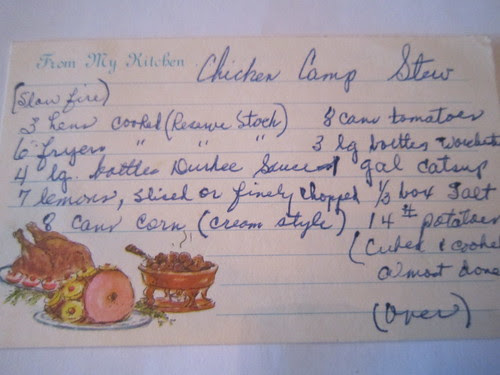 From My Kitchen
Chicken Camp Stew
(Slow fire)
3 hens cooked (Reserve Stock) 8 cans tomatoes
6 fryers " " " 3 lg bottles
4 lg. bottles Durkee Sauce 1 gal catsup
7 lemons, sliced or finely chopped 1/3 box salt
8 cans corn (cream style) 14 # potatoes
(Cubed & cooked
almost done
(Over)